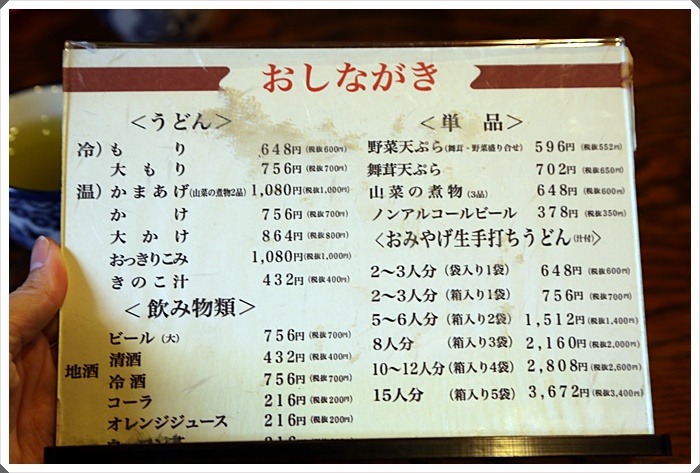 おしながき
<うどん>
冷)もり 648円(税抜600円)
大もり 756円(税抜700円)
温)かまあげ(山菜の煮物2品) 1,080円(税抜1,000円)
かけ 756円(税抜700円)
大かけ 864円(税抜800円)
おっきりこみ 1,080円(税抜1,000円)
きのこ汁 432円(税抜400円)
<飲み物類>
ビール(大) 756円(税抜700円)
地酒 清酒 432円(税抜400円)
冷酒 756円(税抜700円)
コーラ 216円(税抜200円)
オレンジジュース 216円(税抜200円)
<単品>
野菜天ぷら(舞茸・野菜盛り合せ) 596円(税抜552円)
舞茸天ぷら 702円(税抜650円)
山菜の煮物(3品) 648円(税抜600円)
ノンアルコールビール 378円(税抜350円)
<おみやげ生手打ちうどん(汁付)>
2〜3人分(袋入り1袋) 648円(税抜600円)
2〜3人分(箱入り1袋) 756円(税抜700円)
5〜6人分(箱入り2袋) 1,512円(税抜1,400円)
8人分(箱入り3袋) 2,160円(税抜2,000円)
10〜12人分(箱入り4袋) 2,808円(税抜2,600円)
15人分(箱入り5袋) 3,672円(税抜3,400円)